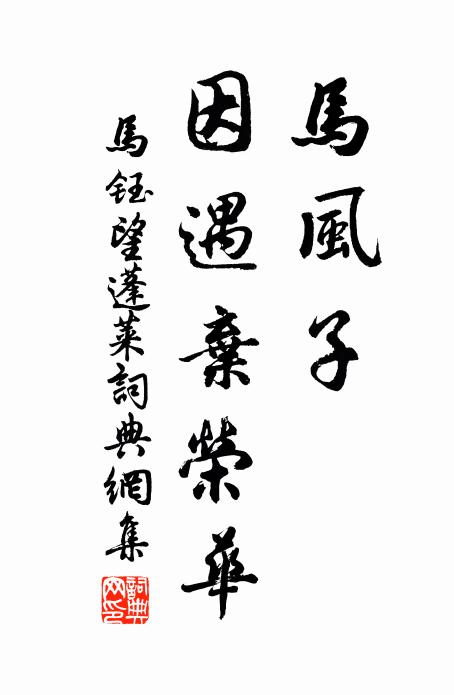 馬風子
因遇棄榮華
馬鈺望蓬萊詞典網集
詞典網印